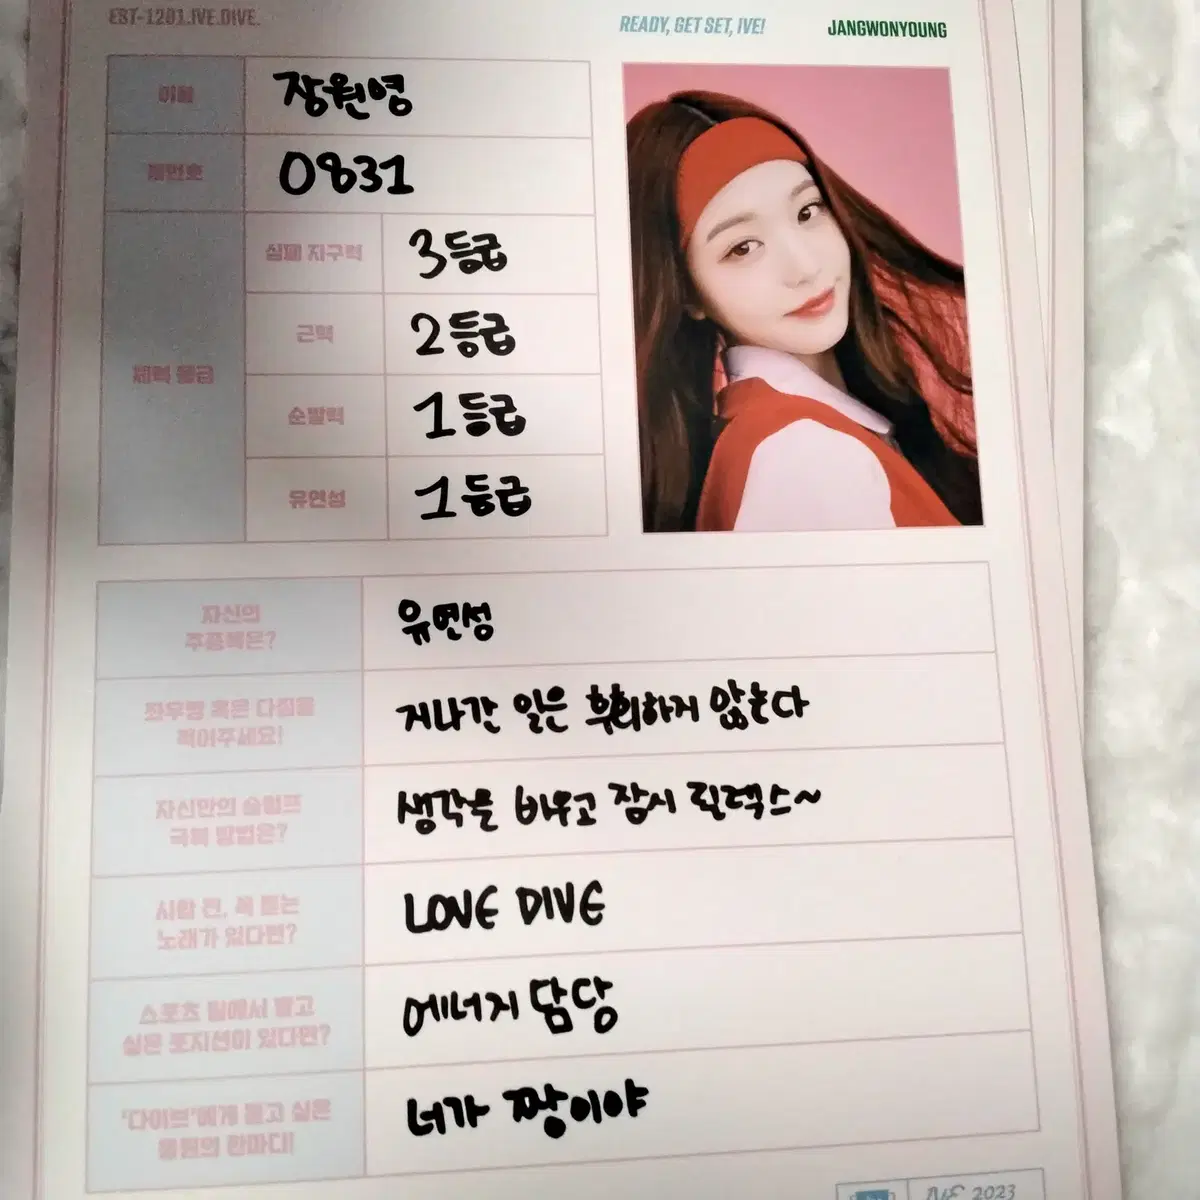 EST-1201.IVE.DIVE.
READY, GET SET, IVE!
JANGWONYOUNG
이름
장원영
등번호
0831
체력 등급
심폐 지구력
3등급
근력
2등급
순발력
1등급
유연성
1등급
자신의
주종목은?
유연성
좌우명 혹은 다짐을
적어주세요!
지나간 일은 후회하지 않는다
자신만의 슬럼프
극복 방법은?
생각을 비우고 잠시 릴렉스~
시합 전, 꼭 듣는
노래가 있다면?
LOVE DIVE
스포츠 팀에서 맡고
싶은 포지션이 있다면?
에너지 담당
'다이브'에게 듣고 싶은
응원의 한마디!
너가 짱이야
IVE 2023